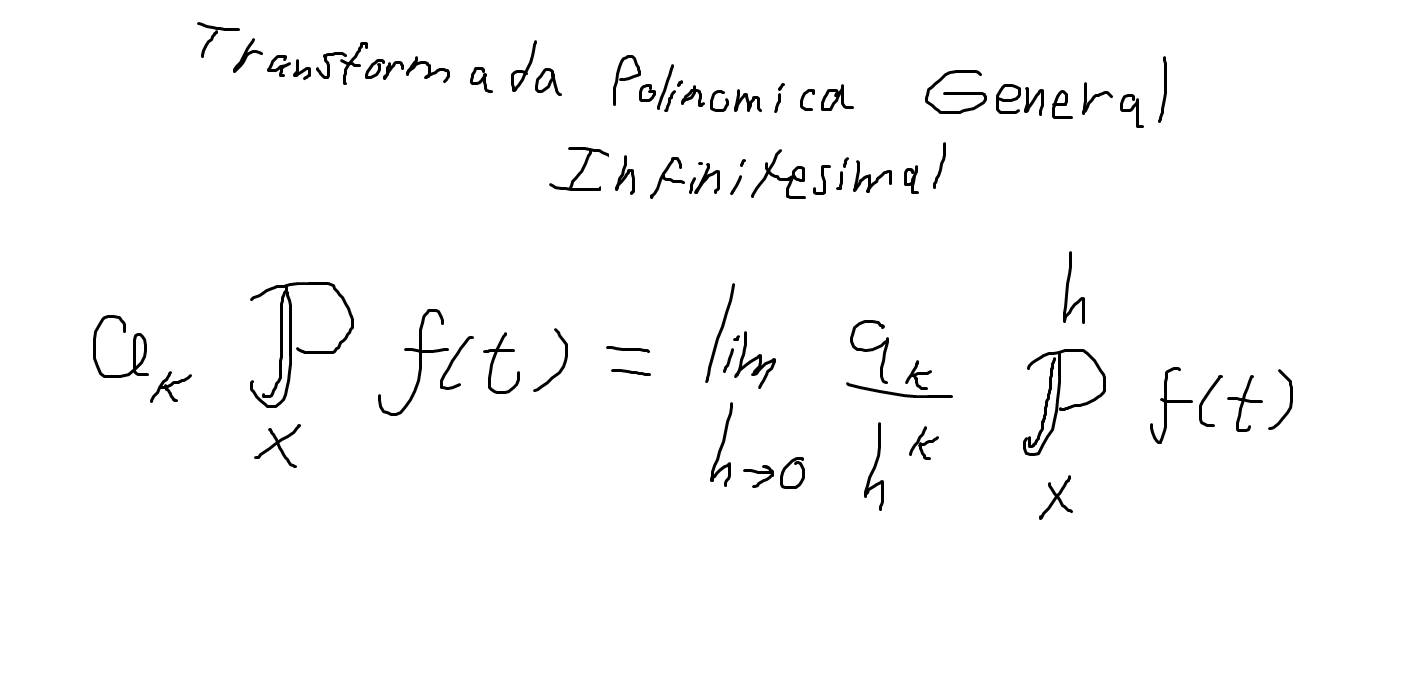 Transformada Polinomica General
Infinitesimal
a_k ℙ_x f(t) = lim_{h→0} \frac{a_k}{h^k} ℙ_x^h f(t)